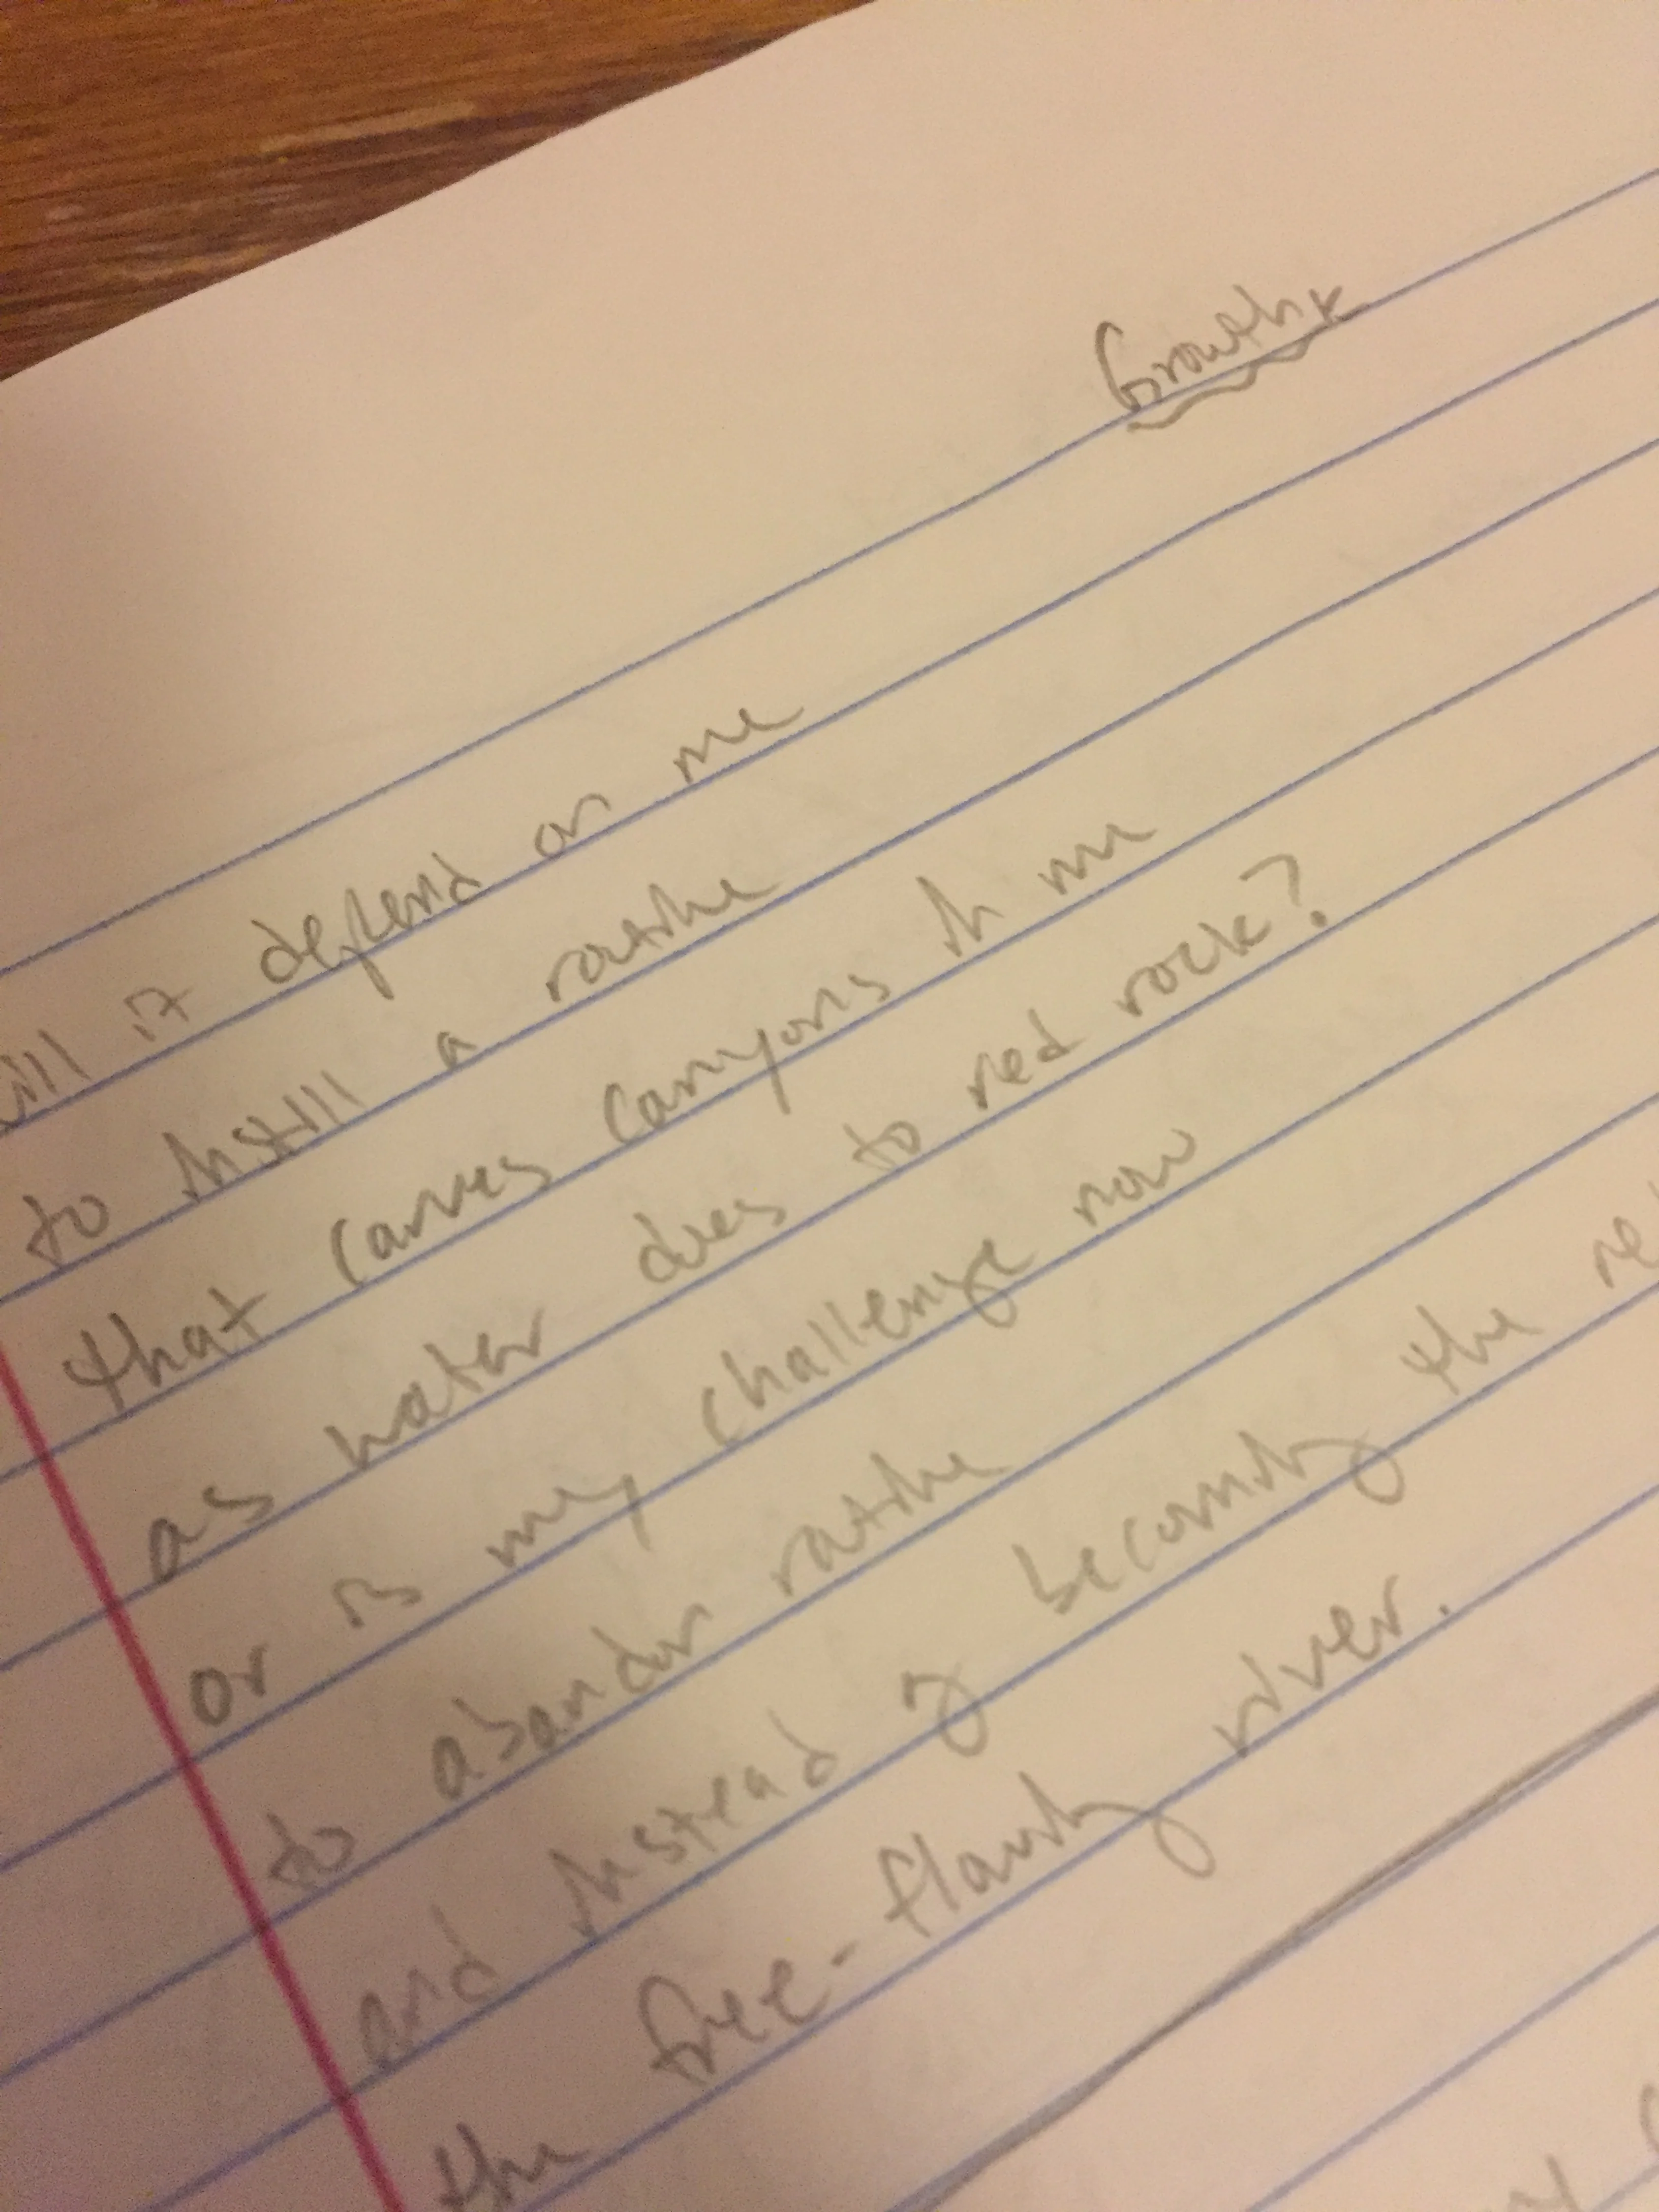 Growth
ill it depend on me
to instill a routine
that carves canyons in me
as water does to red rock?
or is my challenge now
to abandon routine
and instead of becoming the re
the free-flowing river.